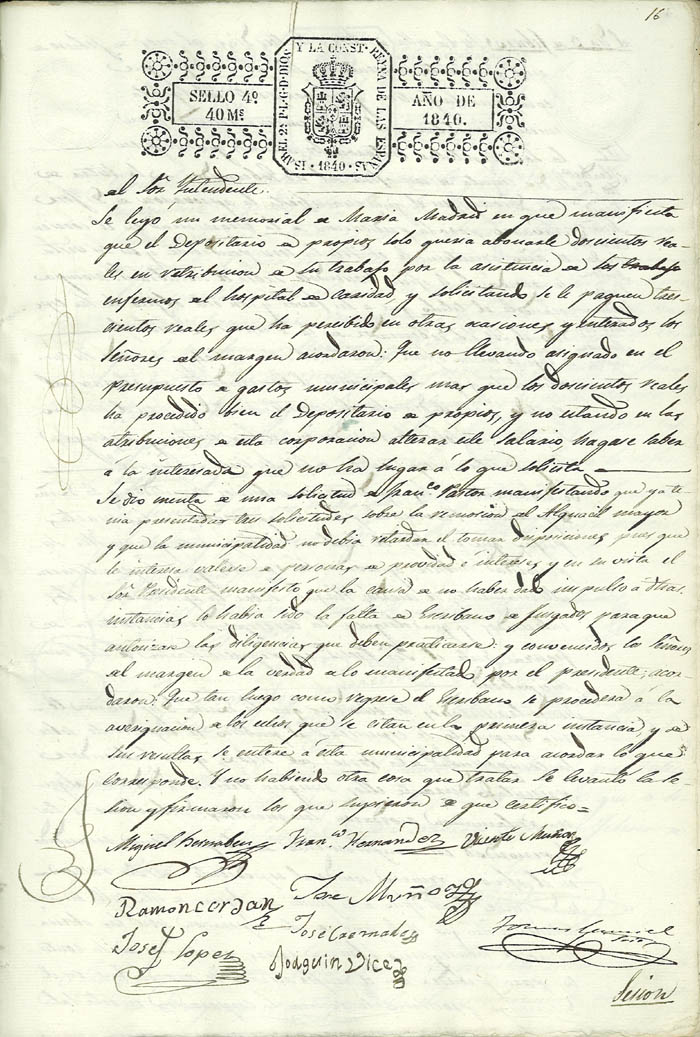 16
Y LA CONST. REYNA DE LAS ESPAÑAS
ISABEL 2ª P.L.G.D.DIOS
· 1840 ·
SELLO 4º
40 Ms
AÑO DE
1840.
al Sor Yntendente.
Se leyó un memorial de Maria Madrid en que manifiesta
que el Depositario de propios solo queria abonarle doscientos rea-
les en retribucion de su trabajo por la asistencia de los trabajo
enfermos del hospital de caridad, y solicitando se le paguen tres-
cientos reales que ha percibido en otras ocasiones, y enterados los
Señores del margen acordaron: Que no llevando asignado en el
presupuesto de gastos municipales mas que los doscientos reales
ha procedido bien el Depositario de propios, y no estando en las
atribuciones de esta corporacion alterar este salario hagase saber
a la interesada que no ha lugar á lo que solicita
Se dio cuenta de una solicitud de Franco Pastor manifestando que ya te-
nia presentadas tres solicitudes sobre la remosion del Alguacil mayor
y que la municipalidad no debia retardar el tomar disposiciones pues que
le interesa valerse de personas de providad é intereses y en su vista el
Sor Presidente manifestó que la causa de no haber dado impulso á dhas
instancias lo habia sido la falta de Escribano de juzgados para que
autorizase las diligencias que deben practicarse: y convenidos los Señores
del margen de la verdad de lo manifestado por el presidente; acor-
daron: Que tan luego como regrese el Escribano se procederá á la
averiguacion de los echos que se citan en la primera instancia, y de
sus resultas se entere á esta municipalidad para acordar lo que
corresponde. Y no habiendo otra cosa que tratar se levantó la se-
sion y firmaron los que supieron de que certifico=
Miguel Bernabeu Franco Hernandez Vicente Muñoz
Ramon cerdan Jose Muñoz
Jose Lopez Jose Cremades
Joaquin Vicedo
Sesion